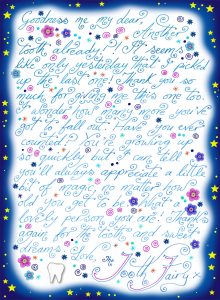 Goodness me my dear, Another
tooth already?! It seems
like only yesterday that I picked
up the last one! Thank you so
much for giving me this one too.
I wonder how many you've
got to fall out? Have you ever
counted? You're growing up
so quickly but I can tell
you'll always appreciate a little
bit of magic, no matter how
old you get to be. What a
lovely person you are! Thank you
again for the tooth and sweet
dreams. Love,
The Tooth Fairy x